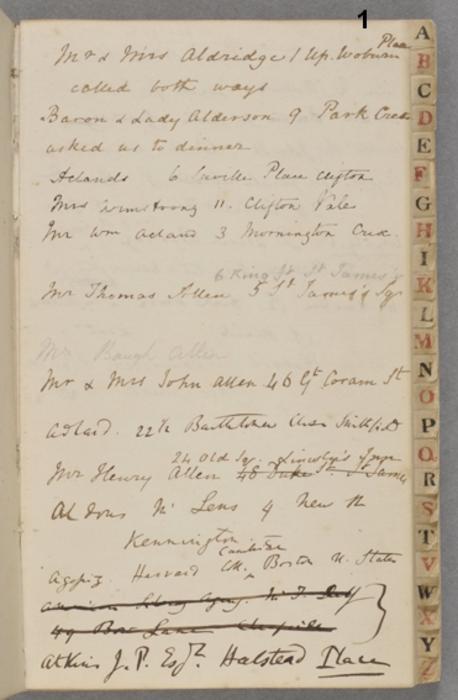 1
Place
Mr & Mrs Aldridge 1 Up. Woburn
called both ways
Baron & Lady Alderson 9 Park Cres
asked us to dinner
Aclands 6 Saville Place Clifton
Mrs Armstrong 11. Clifton Vale
Mr Wm Acland 3 Mornington Cres.
6 King St St James's
Mr Thomas Allen 5 St James's Sqr
Mr Baugh Allen
Mr & Mrs John Allen 46 Gt Coram St
Adlard. 22½ Bartholomew Close Smithfield
24 Old Sqr. Lincoln's Inn
Mr Henry Allen 48 Duke St. St James
Lens 9 New
Kennington
Cambridge
Harvard Boston U. States
49 Bow Lane Cheapside
Atkins J. P. Esqr. Halstead Place
A
B
C
D
E
F
G
H
I
K
L
M
N
O
P
Q
R
S
T
V
W
X
Y
Z